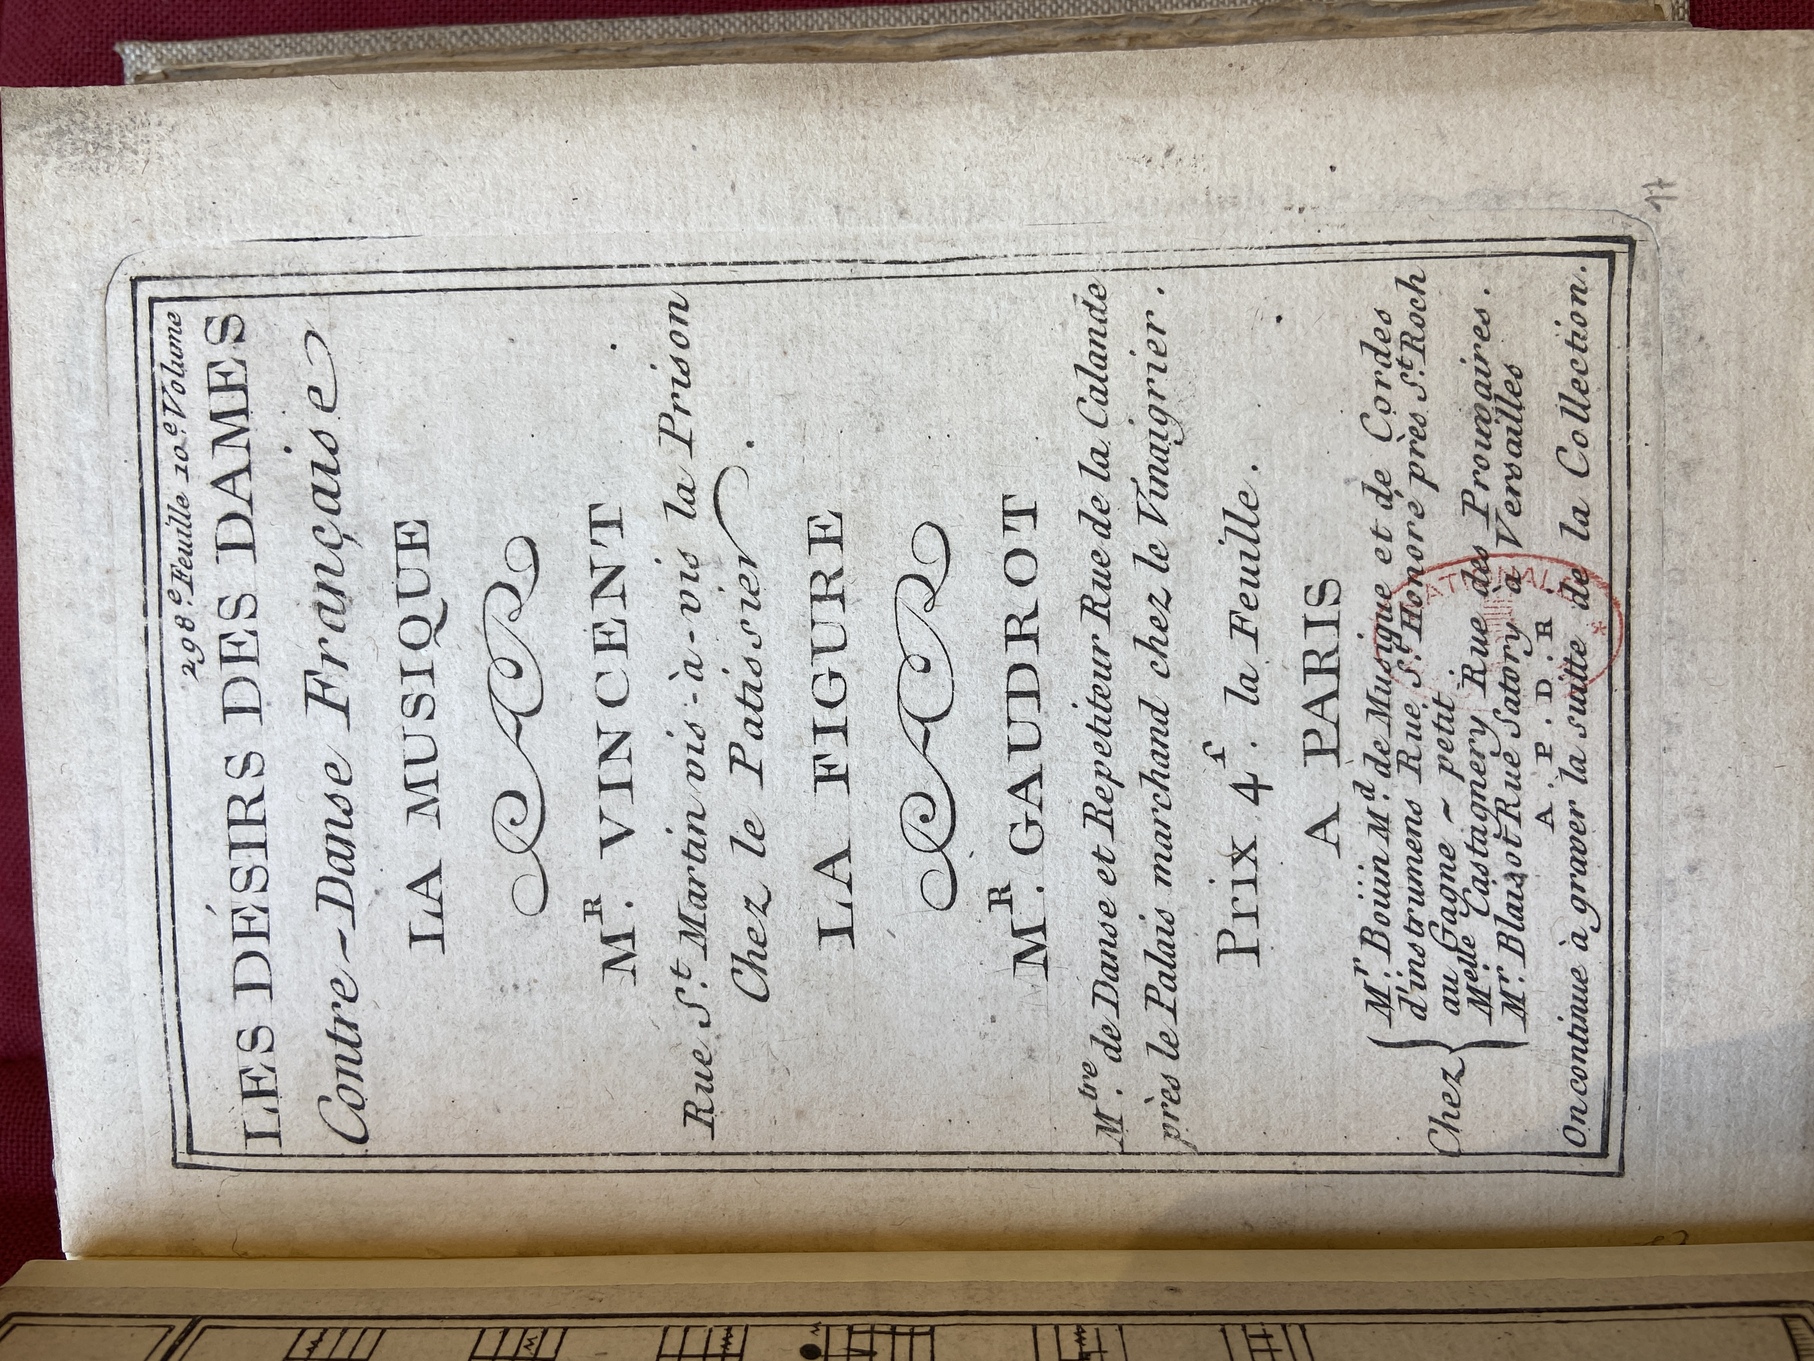 298.e Feuille 10.e Volume
LES DÉSIRS DES DAMES
Contre-Danse Française
LA MUSIQUE
MR. VINCENT
Rue St. Martin vis-à-vis la Prison
Chez le Patissier.
LA FIGURE
MR. GAUDROT
Mtre. de Danse et Repetiteur Rue de la Calande
près le Palais marchand chez le Vinaigrier.
Prix 4f. la Feuille.
A PARIS
Chez
Mr. Boüin Md. de Musique et de Cordes
d'instrumens Rue St. Honoré près St. Roch
au Gagne - petit
Melle Castagnery Rue des Prouvaires.
Mr. Blaisot Rue Satory à Versailles
A. P. D. R.
On continue à graver la suitte de la Collection.
17